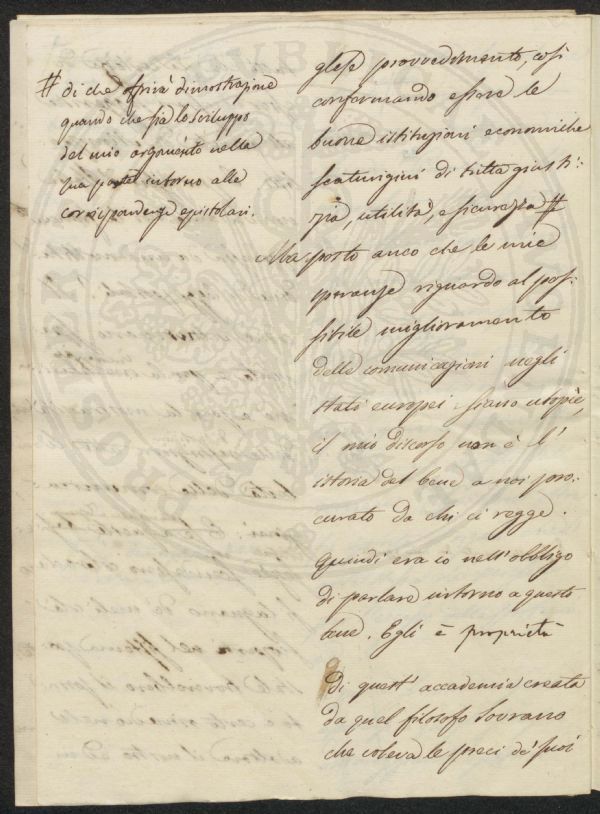 # di che offrirà dimostrazione
quando che sia lo sviluppo
del mio argomento nella
sua parte intorno alle
corrispondenze epistolari.
glese provvedimento, così
conformando essere le
buone istituzioni economiche
scaturigini di tutta giusti-
zia, utilità, e sicurezza #
Ma posto anco che le mie
speranze riguardo al pos-
sibile miglioramento
delle comunicazioni negli
stati europei siano utopìe,
il mio discorso non è l'
istoria del bene a noi pro-
curato da chi ci regge.
Quindi era io nell'obbligo
di parlare intorno a questo
bene. Egli è proprietà
di quest' accademia creata
da quel filosofo Sovrano
che voleva le preci de' suoi